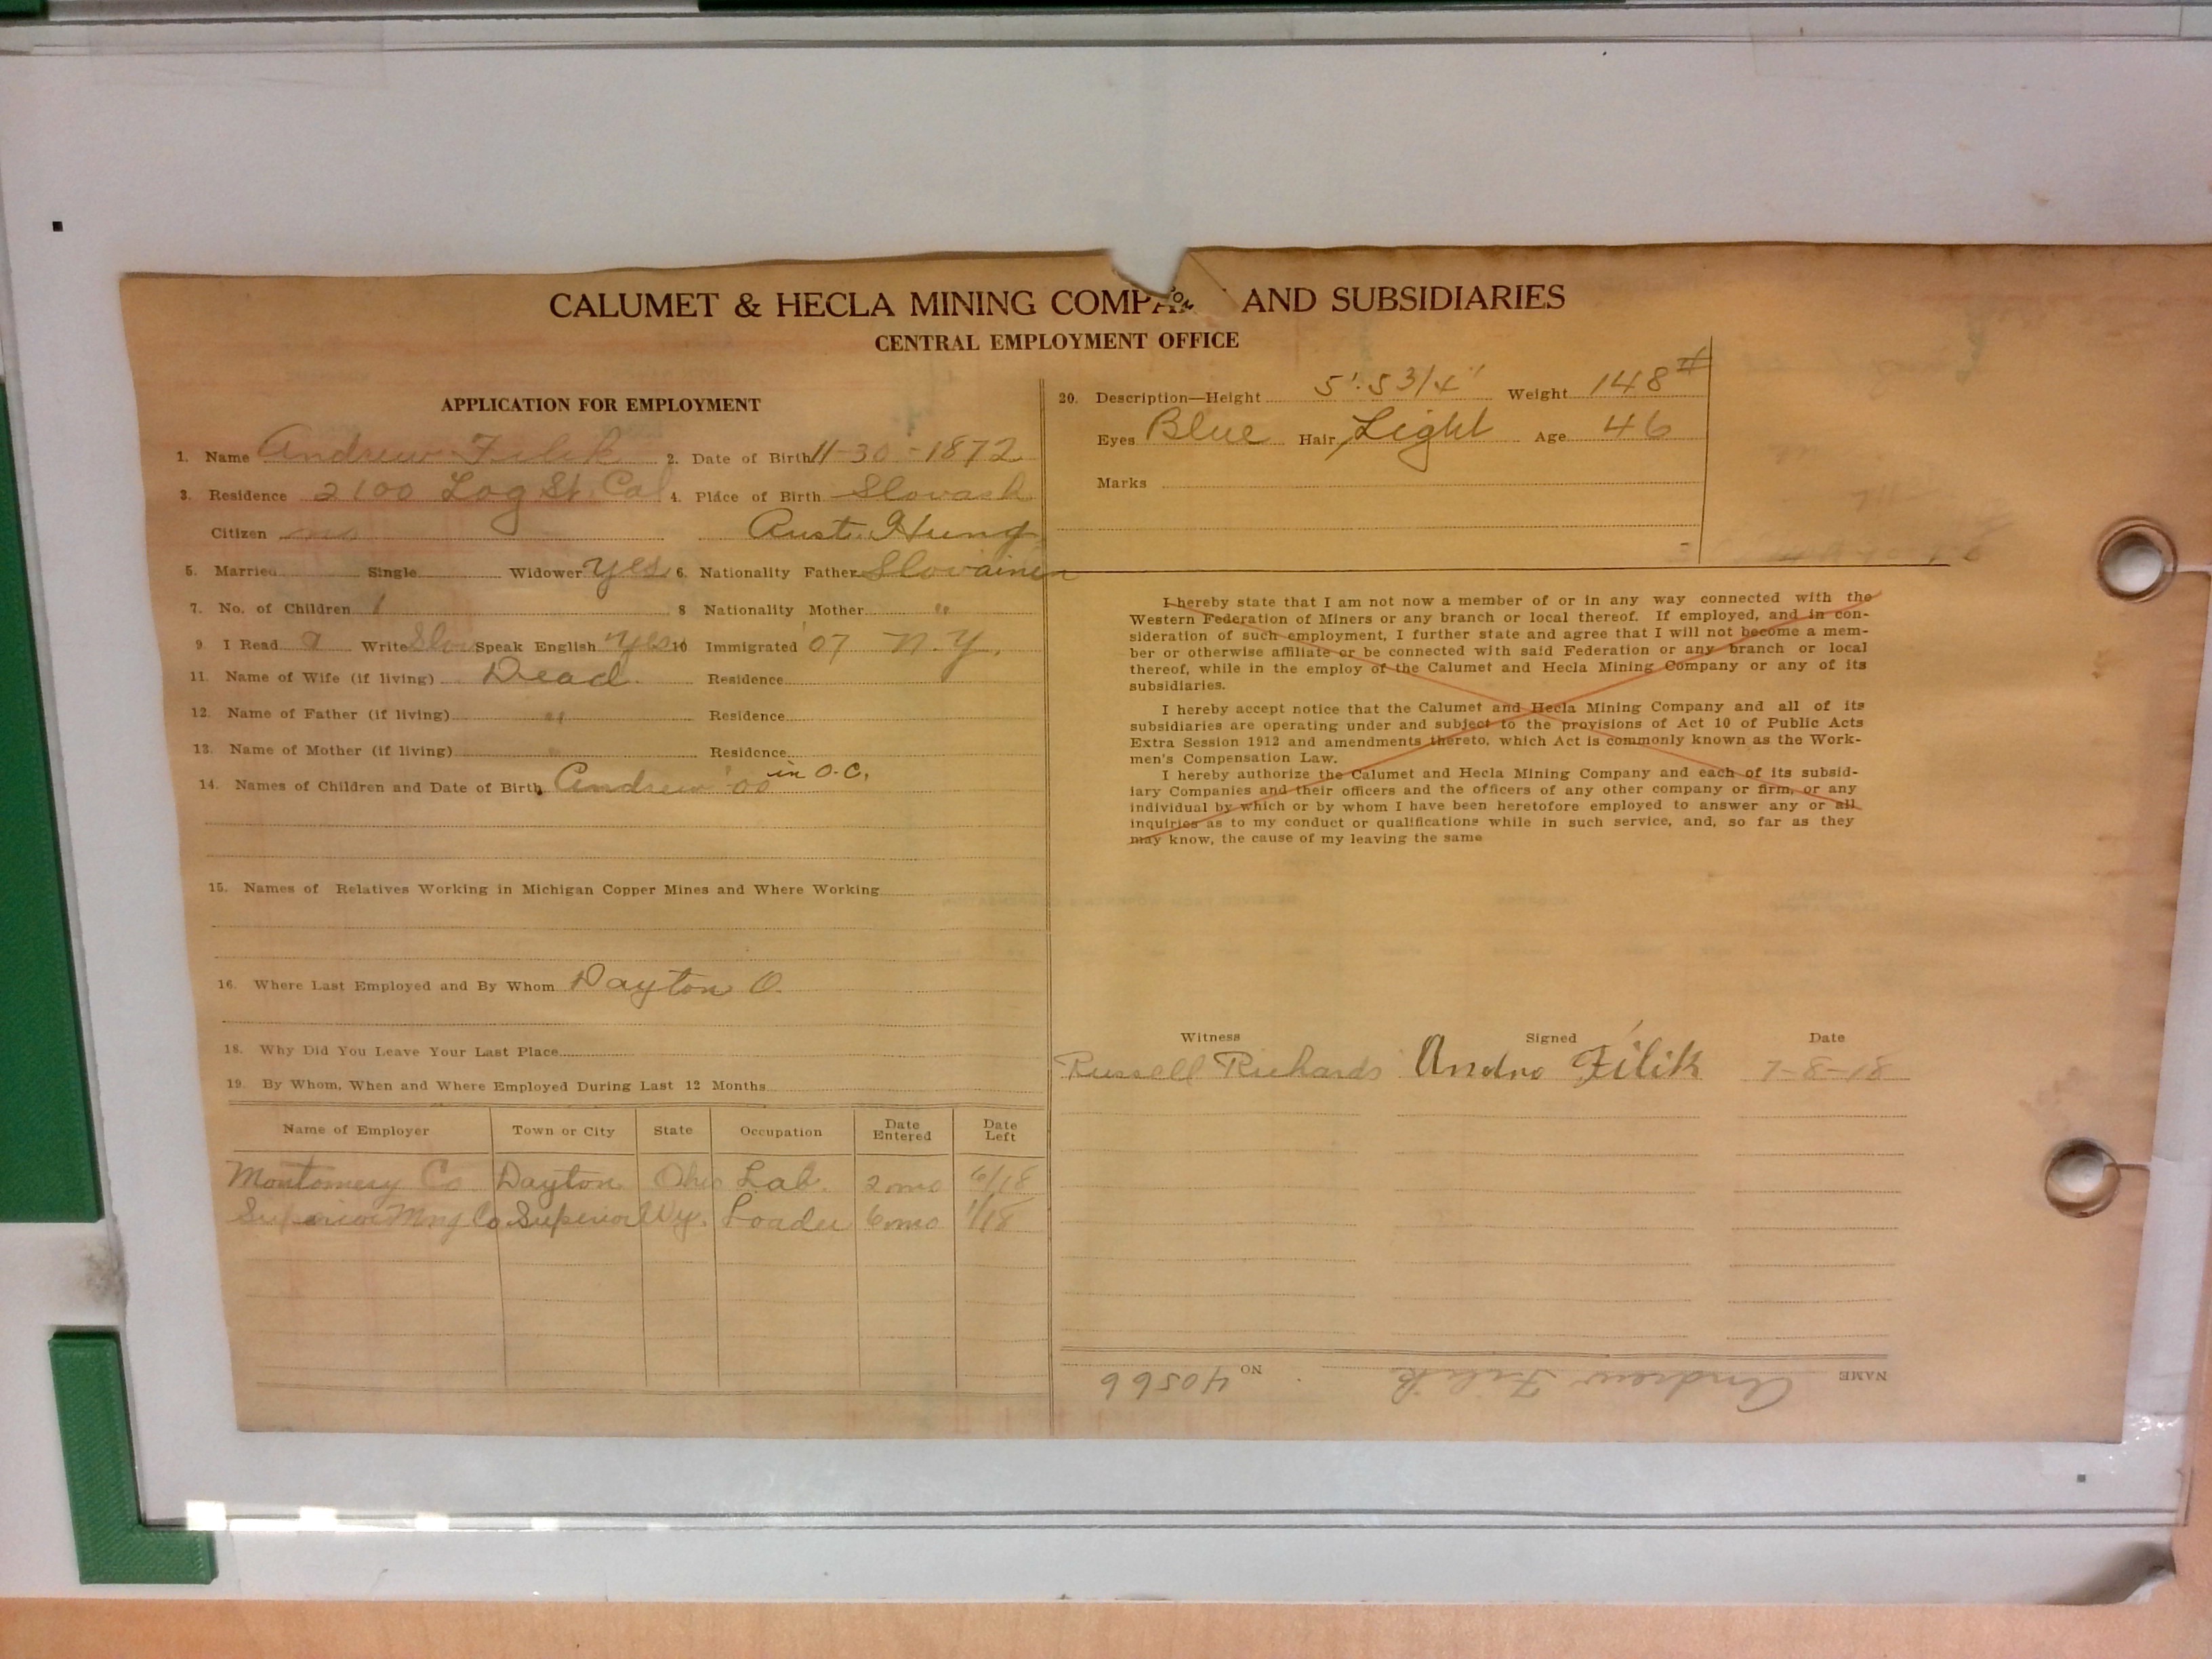 CALUMET & HECLA MINING COMPA AND SUBSIDIARIES
CENTRAL EMPLOYMENT OFFICE
APPLICATION FOR EMPLOYMENT
1. Name Andrew Filik 2. Date of Birth 11-30-1872
3. Residence 2100 Log St. Cal 4. Place of Birth Slovach
Citizen no Aust. Hung
5. Married Single Widower yes 6. Nationality Father Slovainian
7. No. of Children 1 8 Nationality Mother "
9 I Read a Write Slov Speak English yes 10 Immigrated '07 N.Y.
11. Name of Wife (if living) Dead. Residence
12. Name of Father (if living) " Residence
13. Name of Mother (if living) " Residence
14. Names of Children and Date of Birth Andrew '00 in O.C.
15. Names of Relatives Working in Michigan Copper Mines and Where Working
16. Where Last Employed and By Whom Dayton O.
18. Why Did You Leave Your Last Place
19. By Whom, When and Where Employed During Last 12 Months
Name of Employer Town or City State Occupation Date Entered Date Left
Montomery Co Dayton Ohio Lab. 2 mo 6/18
Superior Mng Co Superior Wy. Loader 6 mo 1/18
20. Description—Height 5'. 5 3/4" Weight 148 #
Eyes Blue Hair Light Age 46
Marks
I hereby state that I am not now a member of or in any way connected with the
Western Federation of Miners or any branch or local thereof. If employed, and in con-
sideration of such employment, I further state and agree that I will not become a mem-
ber or otherwise affiliate or be connected with said Federation or any branch or local
thereof, while in the employ of the Calumet and Hecla Mining Company or any of its
subsidiaries.
I hereby accept notice that the Calumet and Hecla Mining Company and all of its
subsidiaries are operating under and subject to the provisions of Act 10 of Public Acts
Extra Session 1912 and amendments thereto, which Act is commonly known as the Work-
men's Compensation Law.
I hereby authorize the Calumet and Hecla Mining Company and each of its subsid-
iary Companies and their officers and the officers of any other company or firm, or any
individual by which or by whom I have been heretofore employed to answer any or all
inquiries as to my conduct or qualifications while in such service, and, so far as they
may know, the cause of my leaving the same
Witness Signed Date
Russell Richards Andro Filik 7-8-18
NAME Andrew Filik NO 40566